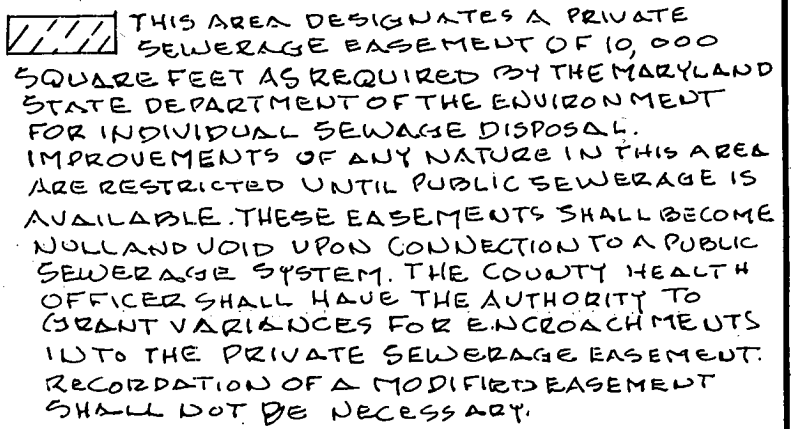 THIS AREA DESIGNATES A PRIVATE
SEWERAGE EASEMENT OF 10,000
SQUARE FEET AS REQUIRED BY THE MARYLAND
STATE DEPARTMENT OF THE ENVIRONMENT
FOR INDIVIDUAL SEWAGE DISPOSAL.
IMPROVEMENTS OF ANY NATURE IN THIS AREA
ARE RESTRICTED UNTIL PUBLIC SEWERAGE IS
AVAILABLE. THESE EASEMENTS SHALL BECOME
NULL AND VOID UPON CONNECTION TO A PUBLIC
SEWERAGE SYSTEM. THE COUNTY HEALTH
OFFICER SHALL HAVE THE AUTHORITY TO
GRANT VARIANCES FOR ENCROACHMENTS
INTO THE PRIVATE SEWERAGE EASEMENT.
RECORDATION OF A MODIFIED EASEMENT
SHALL NOT BE NECESSARY.